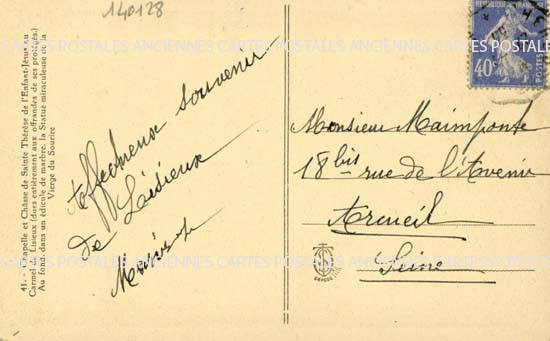 140128
41. - Chapelle et Châsse de Sainte Thérèse de l'Enfant-Jésus au
Carmel de Lisieux (dues entièrement aux offrandes de ses protégés.)
Au fond, dans un édicule de marbre, la Statue miraculeuse de la
Vierge du Sourire
Affectueux souvenir
de Lisieux
REPUBLIQUE FRANÇAISE
40c
POSTES
Monsieur Maimponte
18 bis rue de l'Avenir
Arcueil
Seine
CARTES POSTALES ANCIENNES CARTES POSTALES ANCIENNES